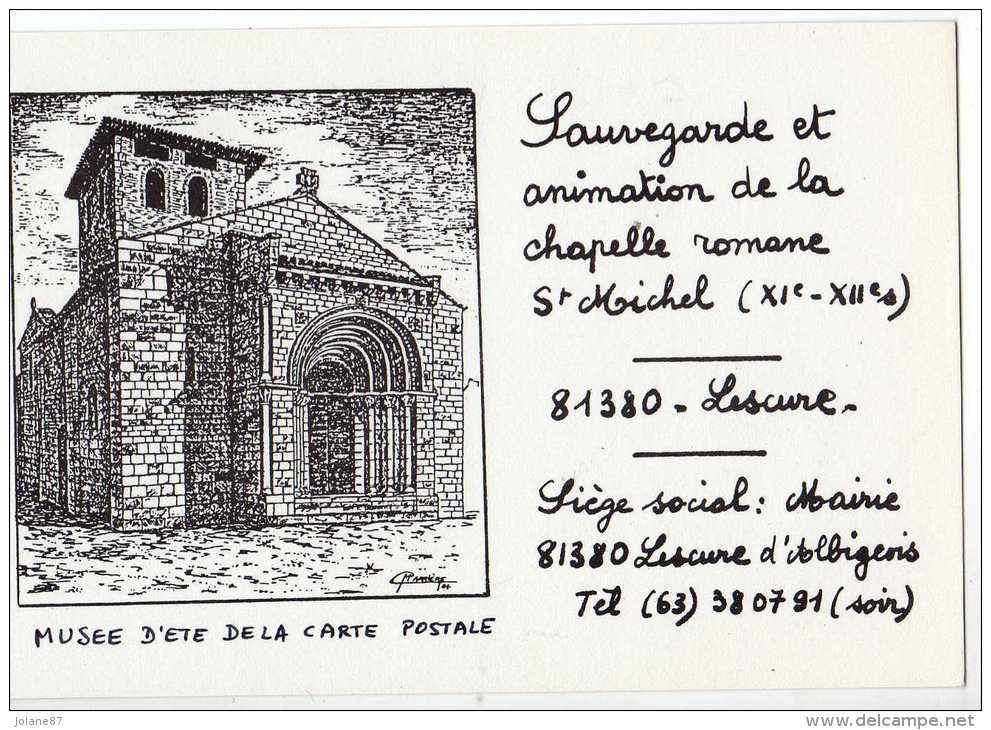 Sauvegarde et
animation de la
chapelle romane
St Michel (XIe-XIIes)
81380 - Lescure -
Siège social : Mairie
81380 Lescure d'Albigeois
Tél (63) 380791 (soir)
MUSEE D'ETE DE LA CARTE POSTALE
jolane87
www.delcampe.net